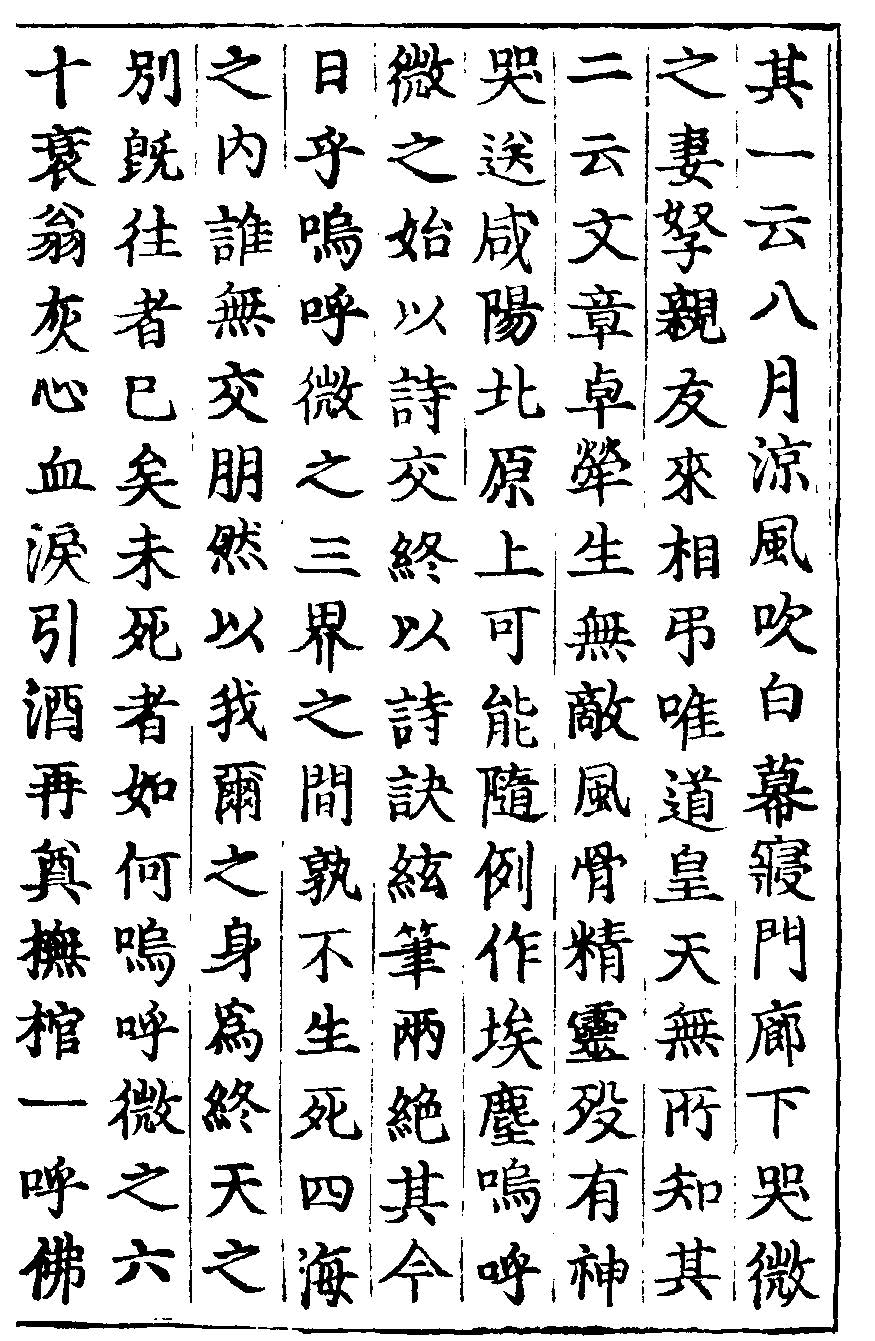 其一云八月涼風吹白幕寢門廊下哭微
之妻孥親友來相弔唯道皇天無所知其
二云文章卓犖生無敵風骨精靈歿有神
哭送咸陽北原上可能隨例作埃塵嗚呼
微之始以詩交終以詩訣絃筆兩絶其今
日乎嗚呼微之三界之間孰不生死四海
之内誰無交朋然以我爾之身爲終天之
別旣往者已矣未死者如何嗚呼微之六
十衰翁灰心血淚引酒再奠撫棺一呼佛